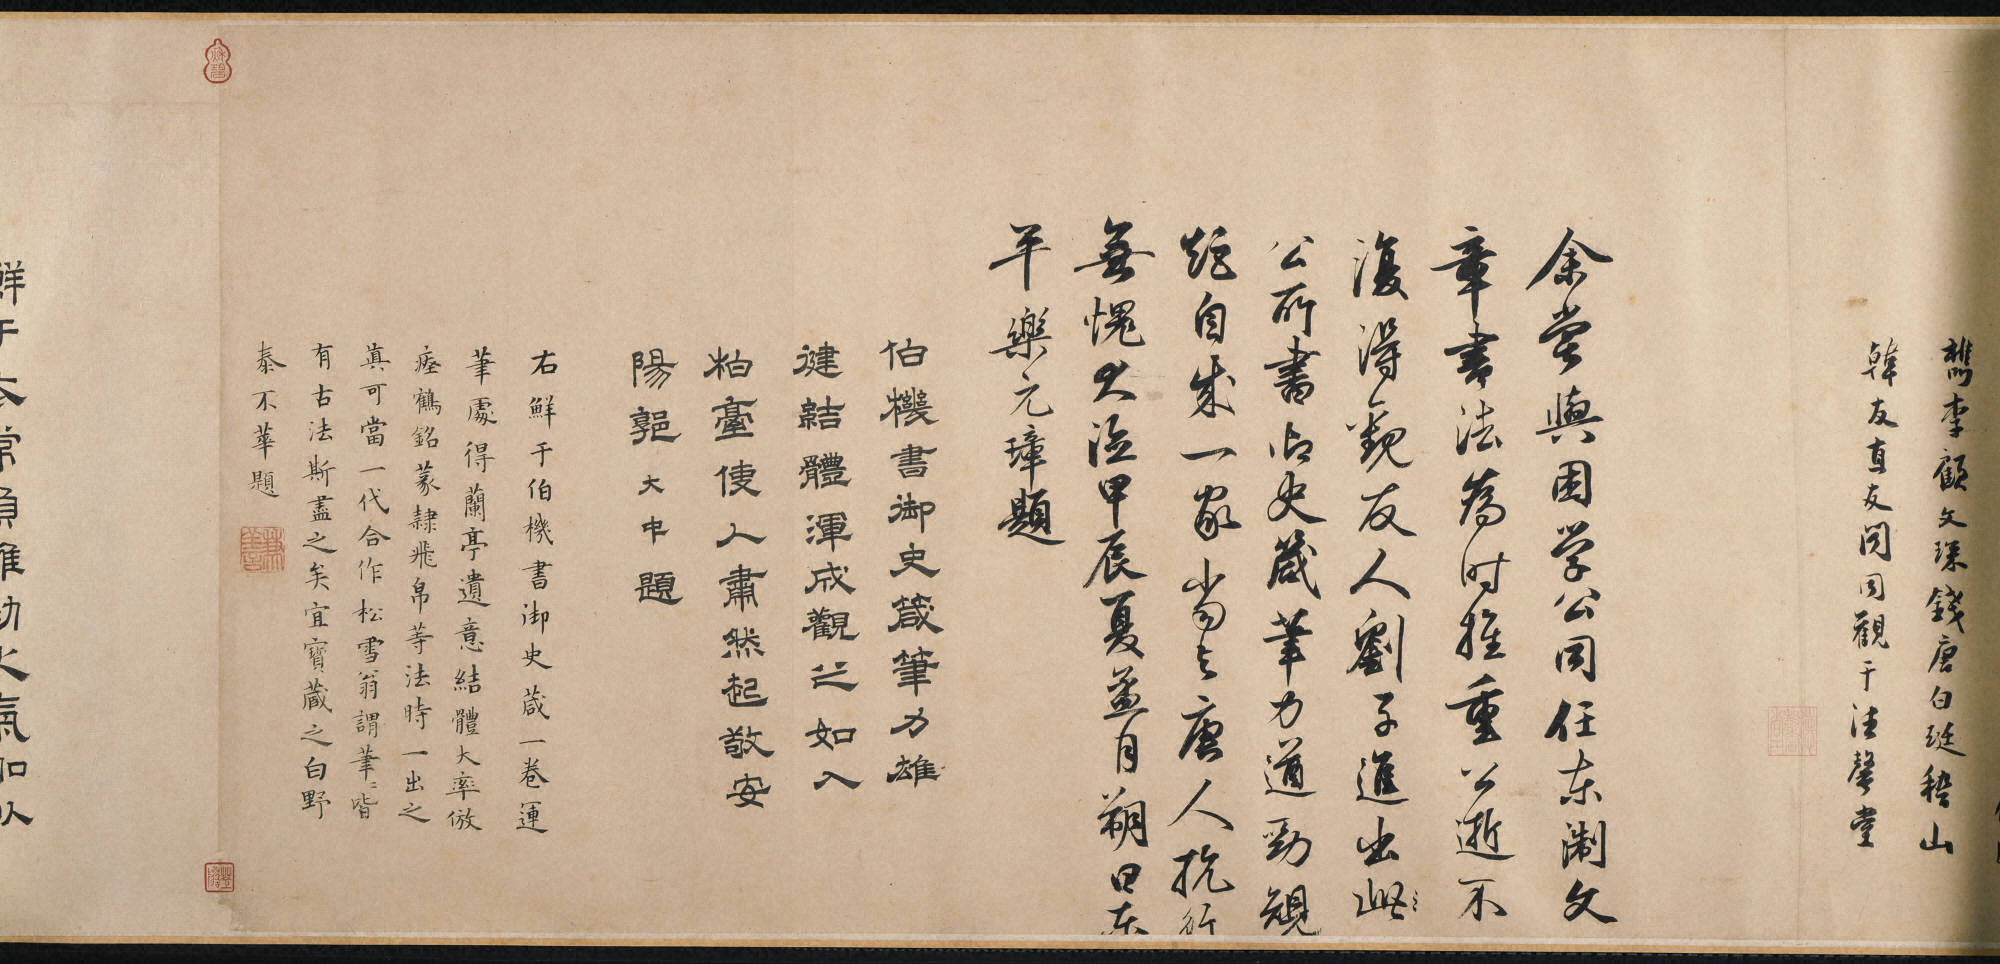 檇李顧文琛錢唐白珽稽山
韓友直友闻同觀于法馨堂
余嘗與困学公同任东淛文
章書法為时推重公逝不
復淂觀友人劉子進出此
公所書御史箴筆力遒勁規
矩自成一家当与唐人抗行
無愧大德甲辰夏孟月朔日东
平樂元璋題
伯機書御史箴筆力雄
健結體渾成觀之如入
柏臺使人肅然起敬安
陽郭大中題
右鮮于伯機書御史箴一卷運
筆處得蘭亭遺意結體大率倣
瘞鶴銘篆隸飛帛等法時一出之
真可當一代合作松雪翁謂筆〻皆
有古法斯盡之矣宜寳藏之白野
泰不華題
鮮于太常負雄勁之氣如以